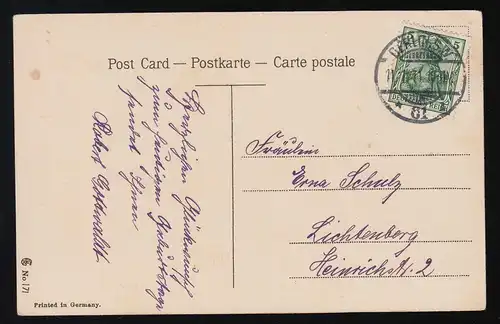 Post Card — Postkarte — Carte postale
Herzlichen Glückwunsch
zum heutigen Geburtstage
sendet Ihnen
Robert
Fräulein
Erna Schulz
Lichtenberg
Heinrichstr. 2
No. 171
Printed in Germany.
5
81